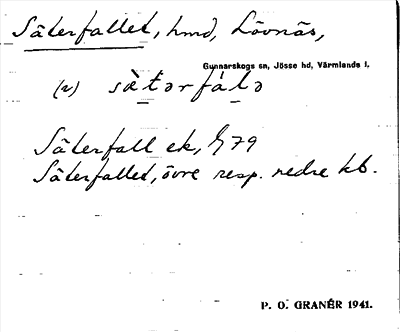 Säterfallet, hmd, Lövnäs,
Gunnarskogs sn, Jösse hd, Värmlands l.
(2) sàtərfálə
Säterfall ek, 79
Säterfallet, övre resp. nedre kb.
P. O. GRANÉR 1941.